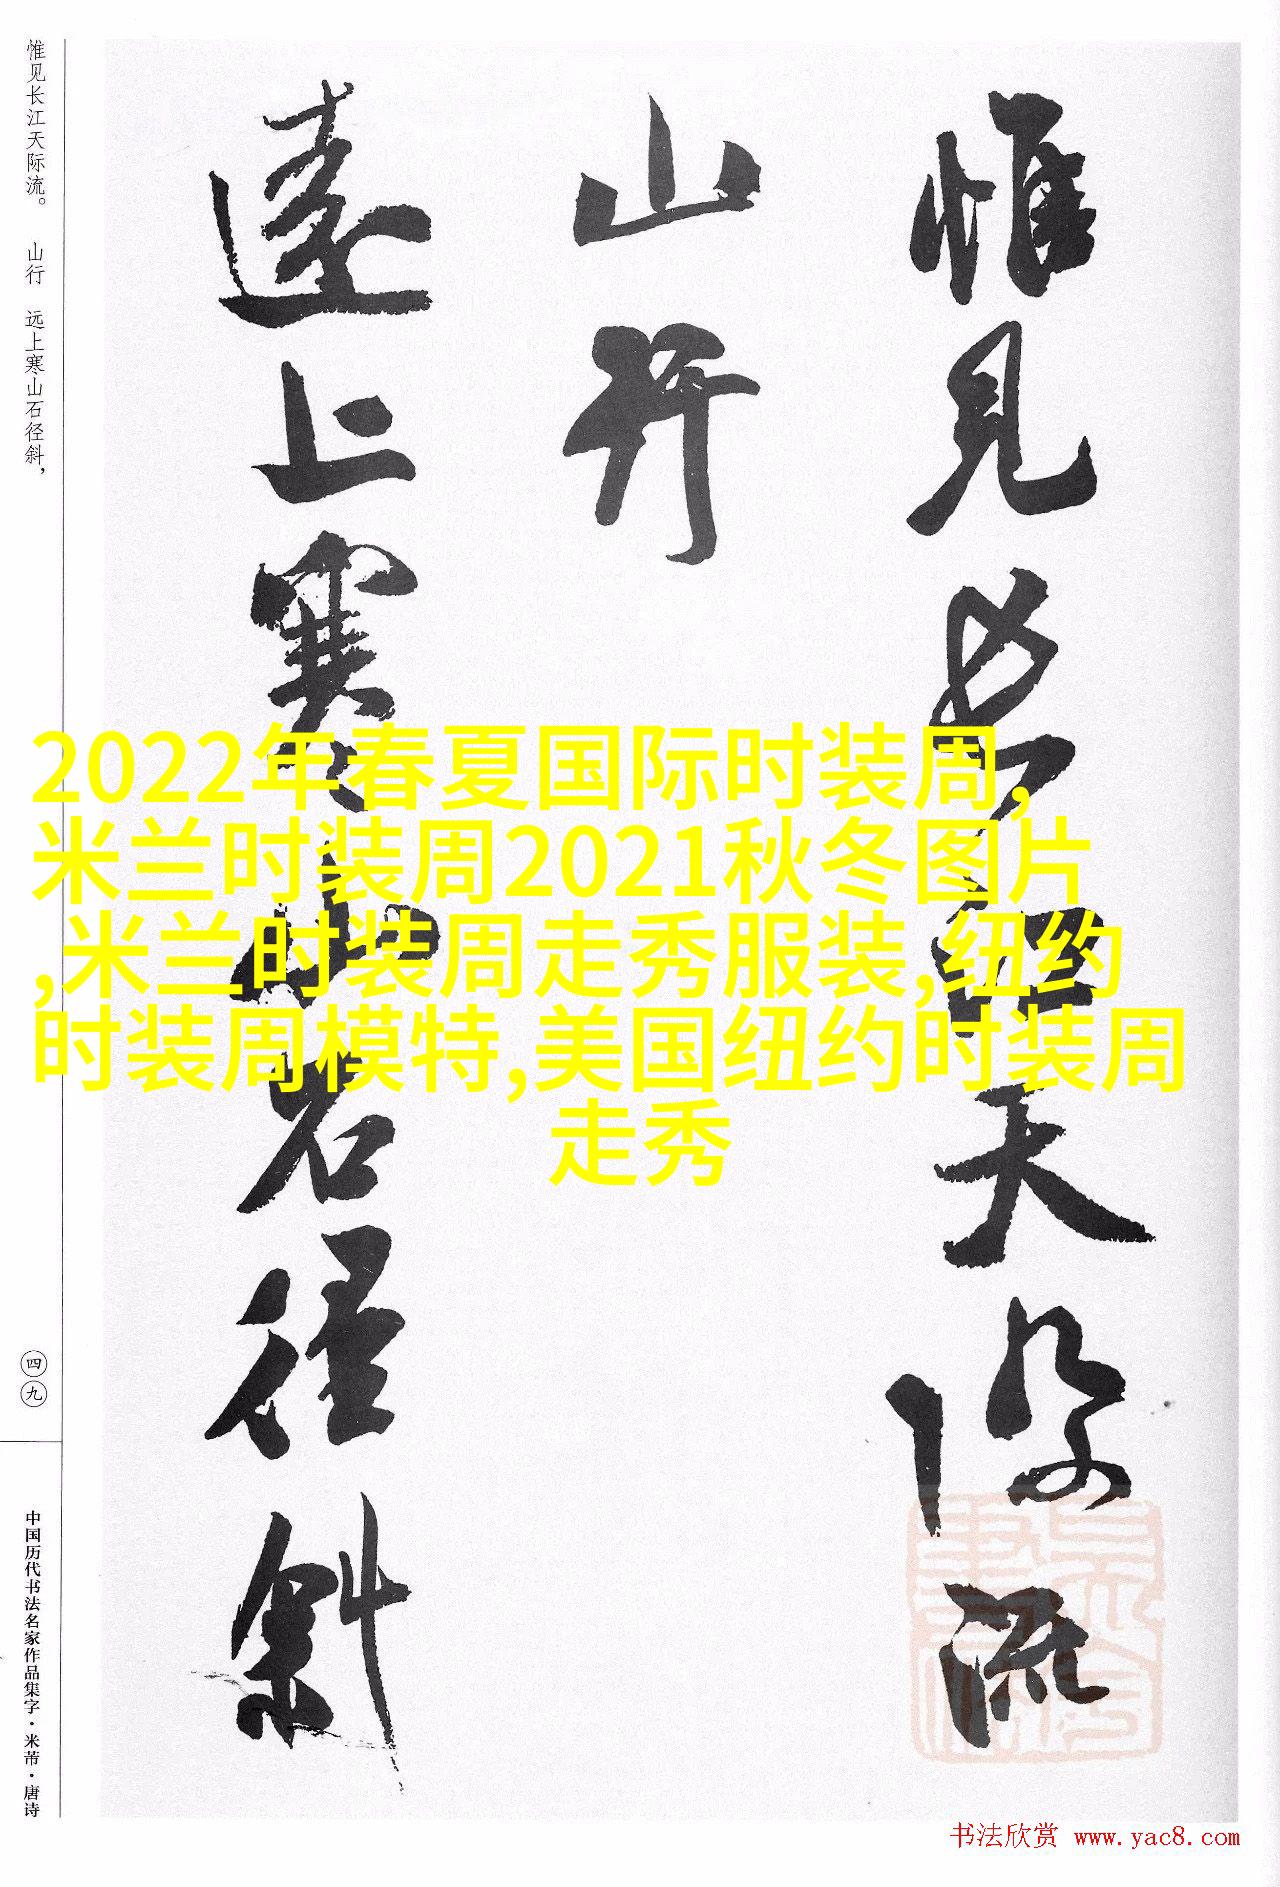 惟见长江天际流
山行
远上寒山石径斜
惟见长江天际流。 山行 远上寒山石径斜，
四九
中国历代书法名家作品集字·米芾·唐诗
2022年春夏国际时装周,
米兰时装周2021秋冬图片
,米兰时装周走秀服装,纽约
时装周模特,美国纽约时装周
走秀
书法欣赏 www.yac8.com